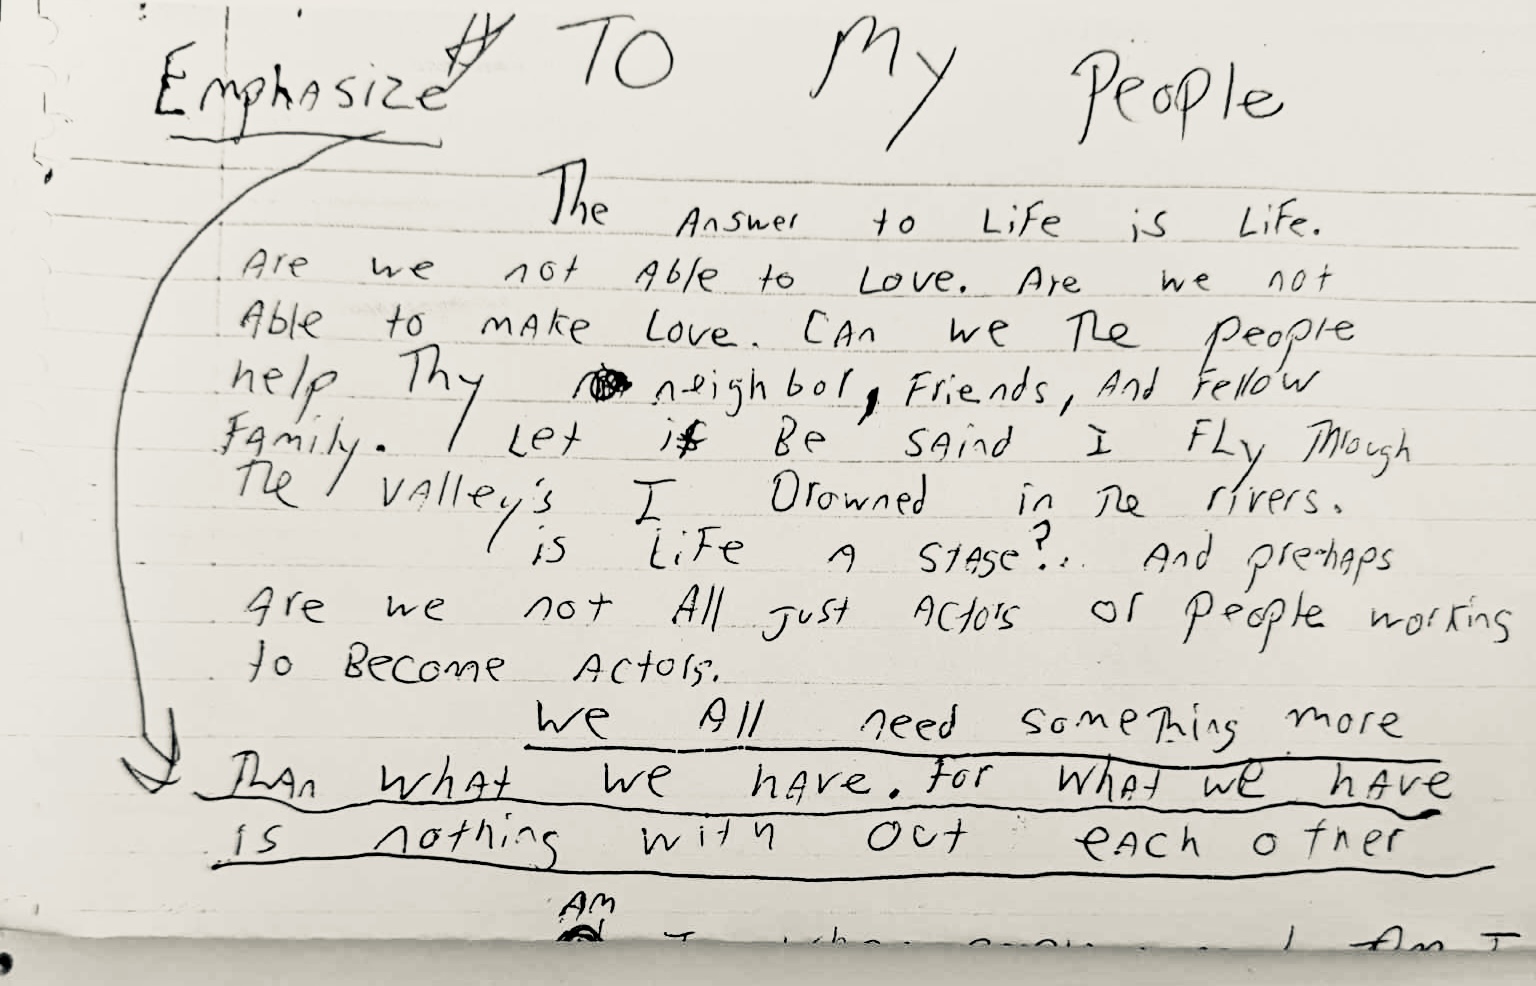 Emphasize # TO My People
The Answer to Life is Life.
Are we not Able to Love. Are we not
Able to mAke Love. CAn we The people
help Thy neighbor, Friends, And Fellow
FAmily. Let it Be sAind I FLy Through
The vAlley's I Drowned in The rivers.
is LiFe A stAge?.. And prehaps
Are we not All just Actors or people working
to Become Actors.
we All need something more
ThAn whAt we hAve. For whAt we hAve
is nothing with out eAch other
Am
Am I